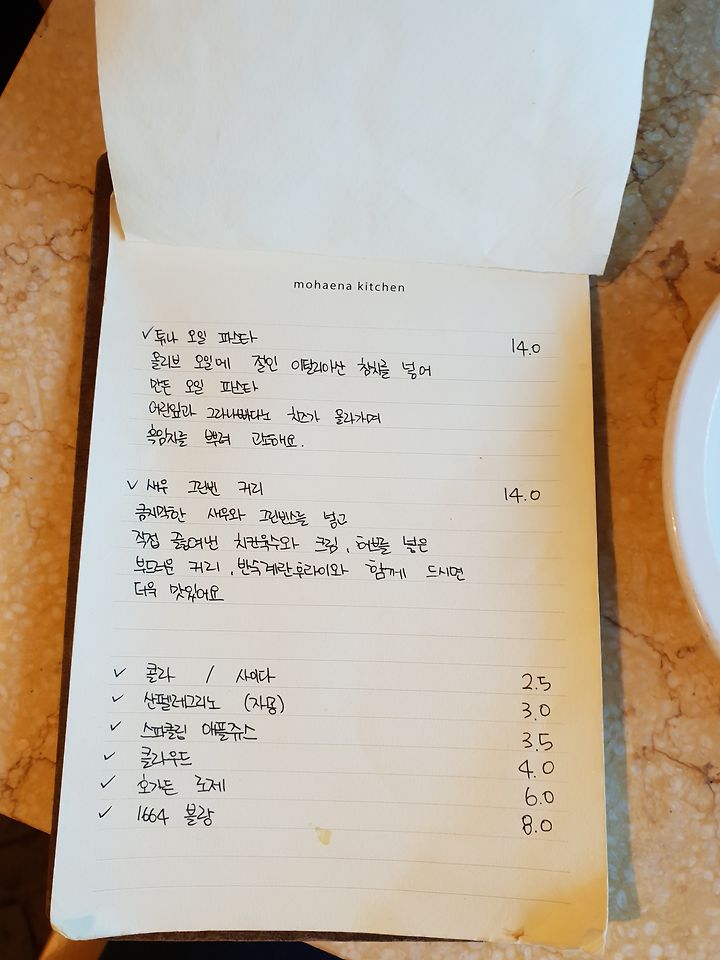 mohaena kitchen
✓ 튜나 오일 파스타 14.0
올리브 오일에 절인 이탈리아산 참치를 넣어
만든 오일 파스타
어린잎과 그라나빠다노 치즈가 올라가며
흑임자를 뿌려 고소해요.
✓ 새우 그린빈 커리 14.0
큼지막한 새우와 그린빈스를 넣고
직접 끓여낸 치킨육수와 크림, 허브를 넣은
부드러운 커리, 반숙계란후라이와 함께 드시면
더욱 맛있어요
✓ 콜라 / 사이다 2.5
✓ 산펠레그리노 (자몽) 3.0
✓ 스파클링 애플쥬스 3.5
✓ 클라우드 4.0
✓ 호가든 로제 6.0
✓ 1664 블랑 8.0